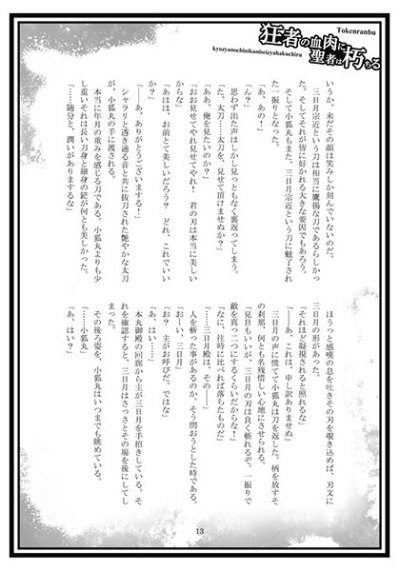 Tokenranbu
狂者の血肉に聖者は朽ちる
kyozyanochinikuniseizyahakuchiru
いうか、未だその顔は笑みしか刻んでいないのだ。
三日月宗近という刀は相当に鷹揚な刀であるらしかっ
た。そしてそれが皆に好かれる大きな要因でもあろう。
そして小狐丸もまた、三日月宗近という刀に魅了され
た一振りとなった。
「あ、あの！」
「ん？」
思わず出た声はしかし見っともなく裏返ってしまう。
「た、太刀……太刀を、見せて頂けませぬか？」
「ああ、俺を見たいのか？」
「おお見せてやれ見せてやれ！　君の刃は本当に美しい
からな」
「あはは、お前とて美しいだろう？　どれ、これでいい
か？」
「――あ、ありがとうございまする！」
シャラリと透き通る音と共に抜刀された艶やかな太刀
が、小狐丸の手に渡される。
本当に年月の重みを感じる刀である。小狐丸よりも少
し重いそれは長い刀身と細身の鋩が何とも美しかった。
「……随分と、潤いがありまするな」
ほうっと感嘆の息を吐きその刃を覗き込めば、刃文に
三日月の形があった。
「それほど凝視されると照れるな」
「――あ、これは、申し訳ありませぬ」
三日月の声に慌てて小狐丸は刀を返した。柄を放すそ
の刹那、何とも名残惜しい心地にさせられる。
「見目もいいが、三日月の刃は良く斬れるぞ。一振りで
敵を真っ二つにするくらいだからな！」
「なに、往時に比べれば落ちたものだ」
「……三日月殿は、その――」
人を斬った事があるのか。そう問おうとした時である。
「おーい、三日月」
「あ、はい……」
「お？　主がお呼びだ。ではな」
本丸御殿の回廊から主が三日月を手招きしている。そ
れを確認すると、三日月はさっさとその場を後にしてし
まった。
その後ろ姿を、小狐丸はいつまでも眺めている。
「……小狐丸」
「あ、はい？」
13